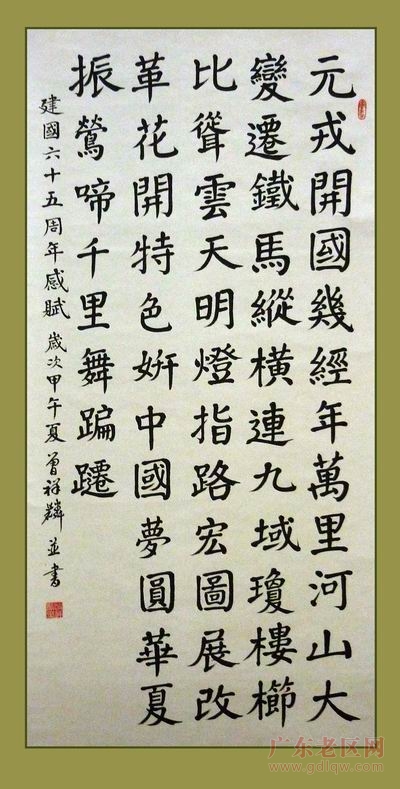 元戎開國幾經年萬里河山大
變遷鐵馬縱橫連九域瓊樓櫛
比聳雲天明燈指路宏圖展改
革花開特色妍中國夢圓華夏
振鶯啼千里舞蹁躚
建國六十五周年感賦 歲次甲午夏 曾祥麟並書
广东老区网
www.gdlqw.com